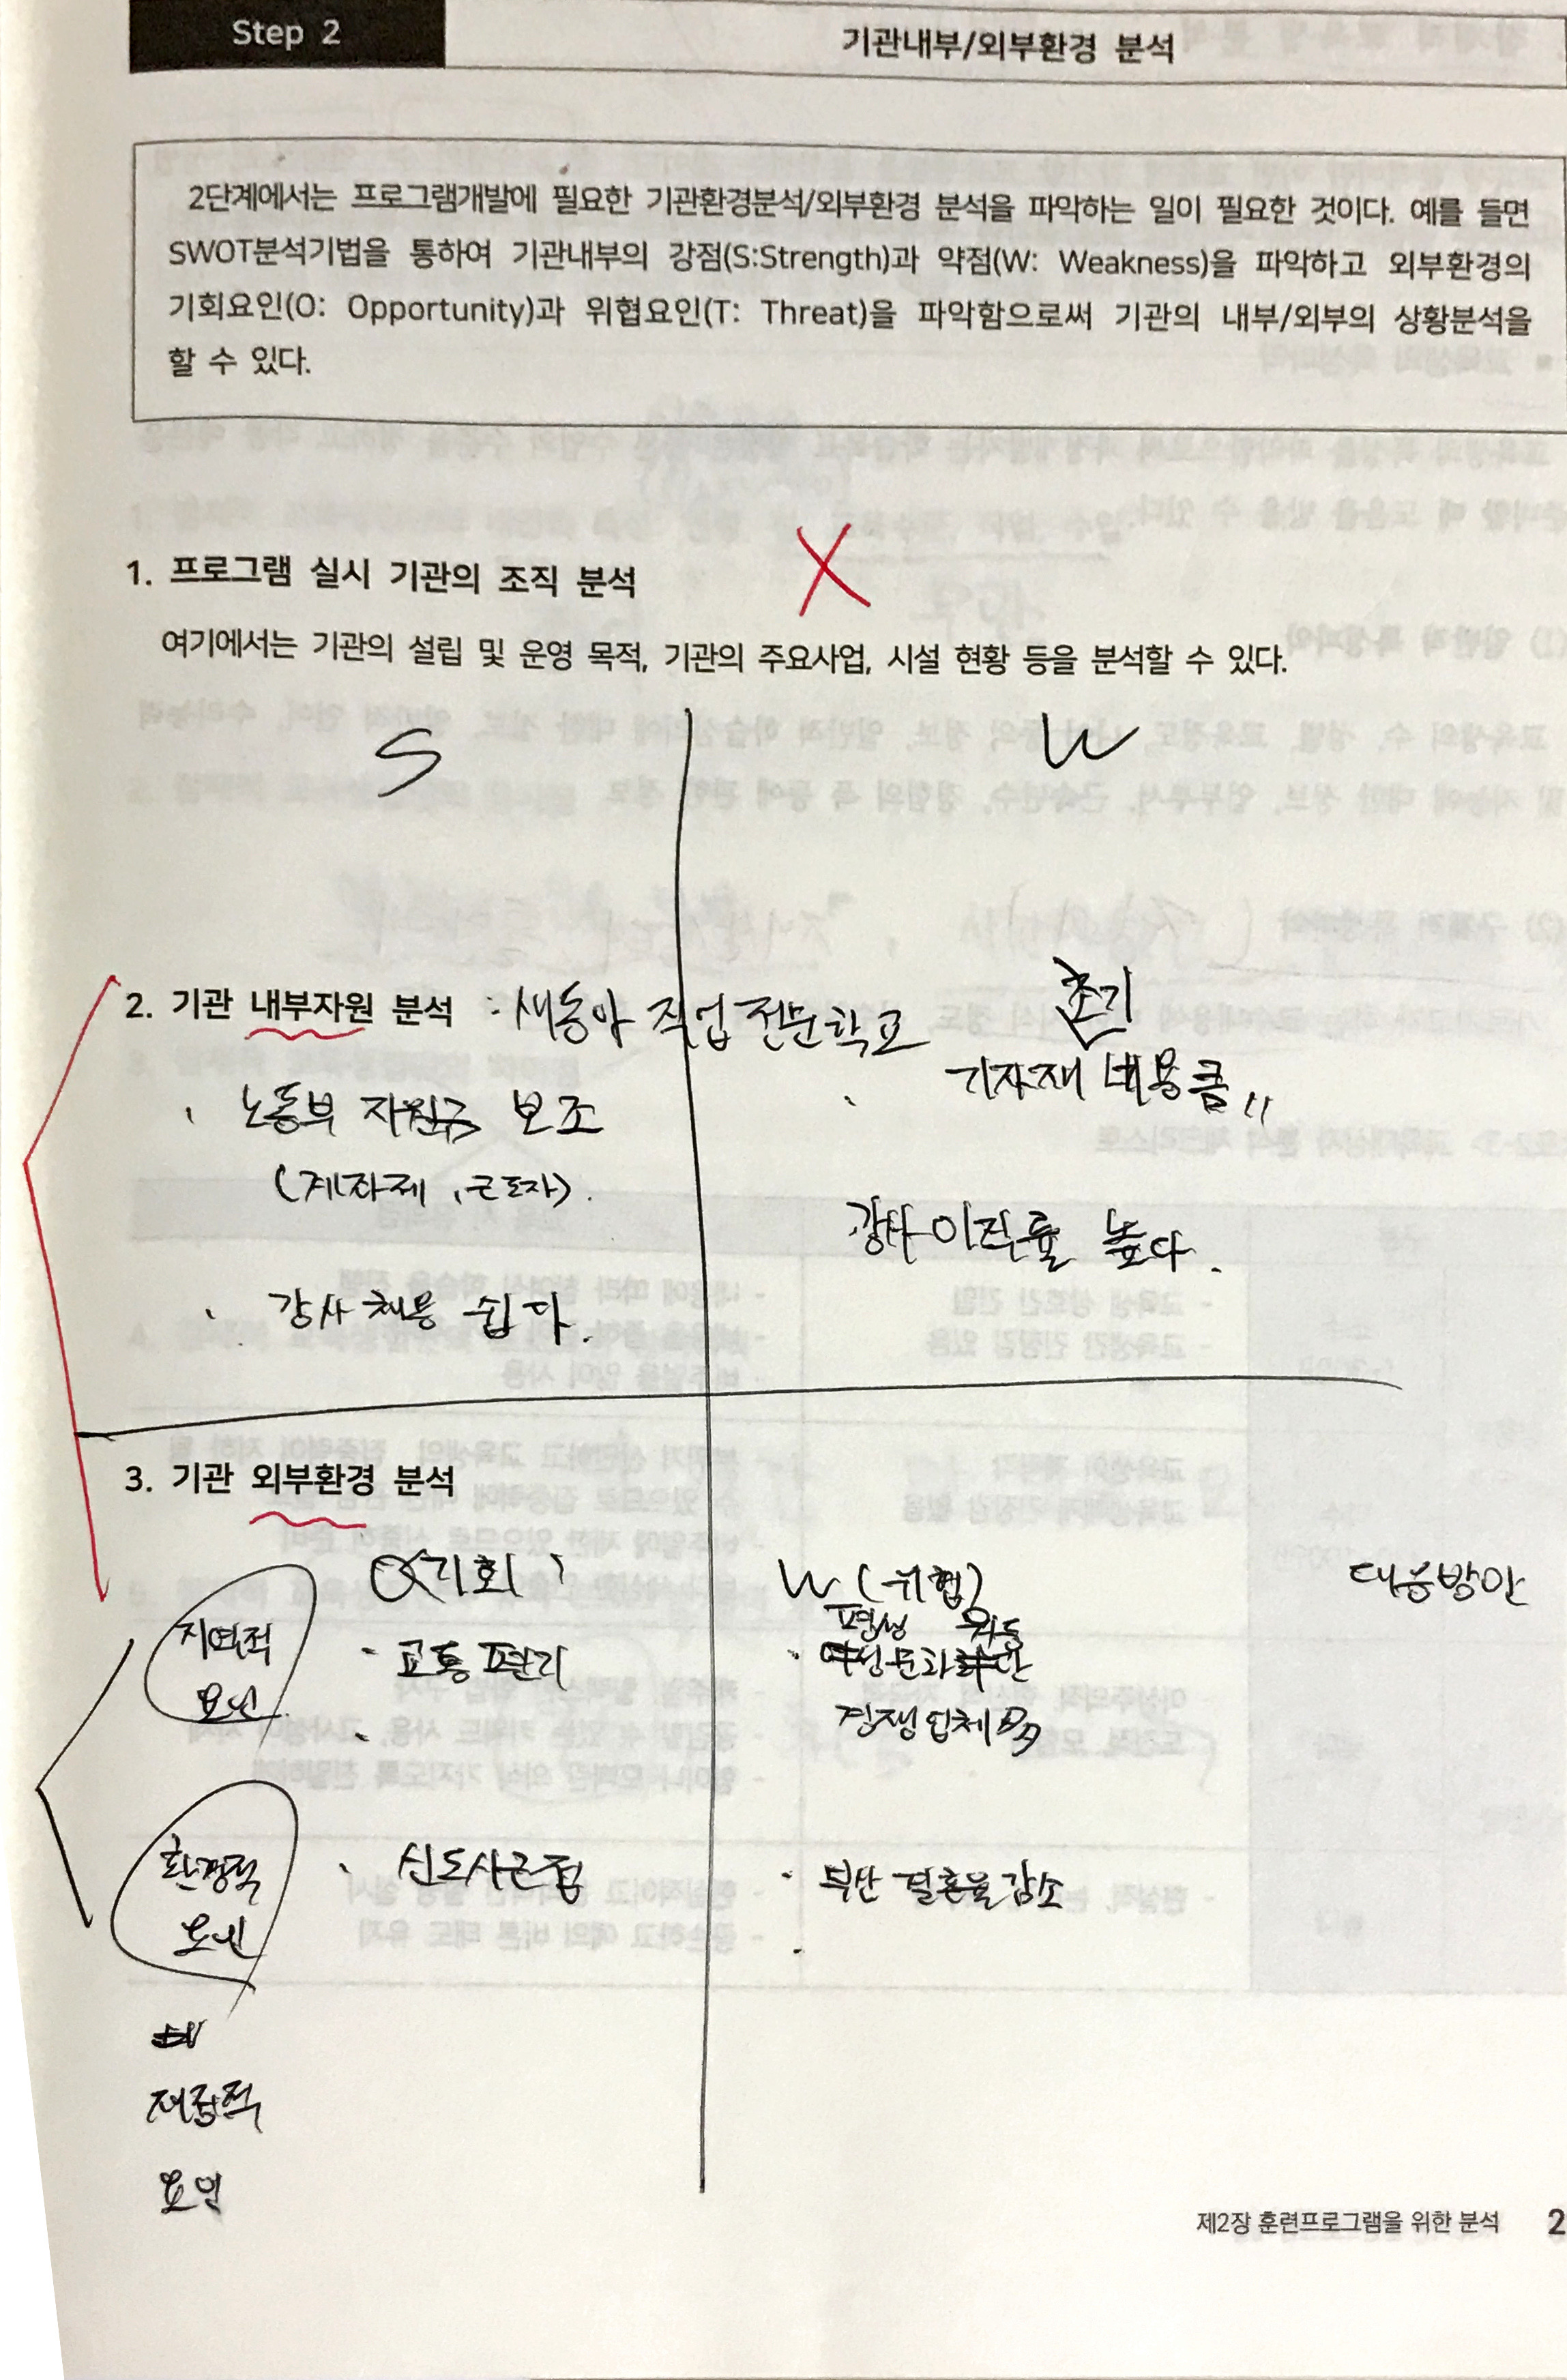 Step 2
기관내부/외부환경 분석
2단계에서는 프로그램개발에 필요한 기관환경분석/외부환경 분석을 파악하는 일이 필요한 것이다. 예를 들면
SWOT분석기법을 통하여 기관내부의 강점(S:Strength)과 약점(W: Weakness)을 파악하고 외부환경의
기회요인(O: Opportunity)과 위협요인(T: Threat)을 파악함으로써 기관의 내부/외부의 상황분석을
할 수 있다.
X
1. 프로그램 실시 기관의 조직 분석
여기에서는 기관의 설립 및 운영 목적, 기관의 주요사업, 시설 현황 등을 분석할 수 있다.
S
W
2. 기관 내부자원 분석 : 새동아 직업전문학교
초기
기자재 비용큼
· 노동부 보조
(계좌제, 근로자).
강사이직률 높다.
· 강사채용 쉽다.
3. 기관 외부환경 분석
O(기회)
W(위협)
대응방안
지역적
요인
· 교통편리
평생
문화회관
경쟁업체多
환경적
요인
· 신도시근접
· 부산 결혼율감소
요인
제2장 훈련프로그램을 위한 분석 2